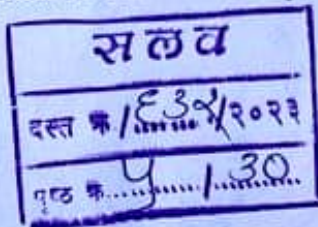 सलव
दस्त क्र /६३४/२०२३
पृष्ठ क्र.....५...../....३०.....